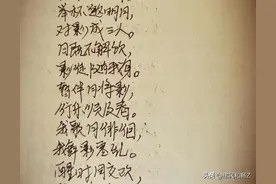 举杯邀明月,
对影成三人。
月既不解饮,
影徒随我身。
暂伴月将影,
行乐须及春。
我歌月徘徊,
我舞影零乱。
醒时同交欢,
头条